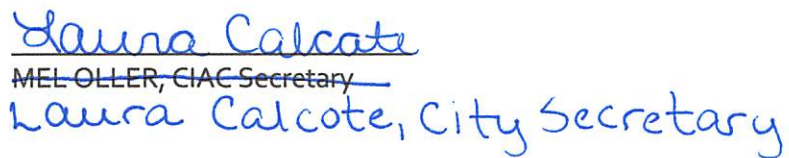 Laura Calcote
MEL OLLER, CIAC Secretary
Laura Calcote, City Secretary